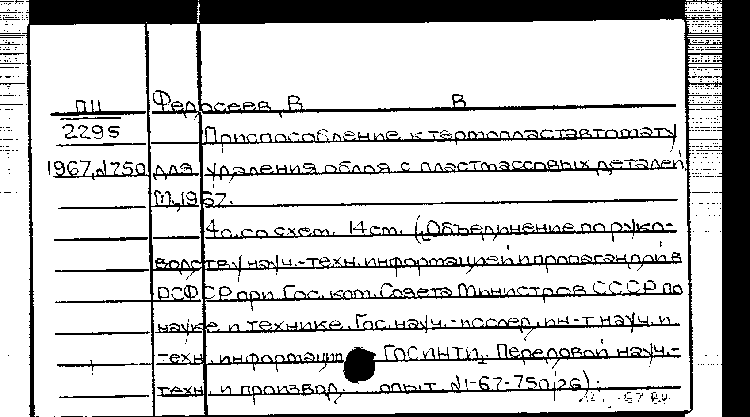 ПН Федосеев, В В
2295 Приспособление к термопластавтомату
1967, №750 для удаления облоя с пластмассовых деталей
М., 1967.
4 с. со схем. 14 см. (Объединение по руко-
водству науч.-техн. информацией и пропагандой в
РСФСР при Гос. ком. Совета Министров СССР по
науке и технике. Гос. науч.-исслед. ин-т науч. и
техн. информации ГОСИНТИ. Передовой науч.-
техн. и производ. опыт №1-67-750/26);